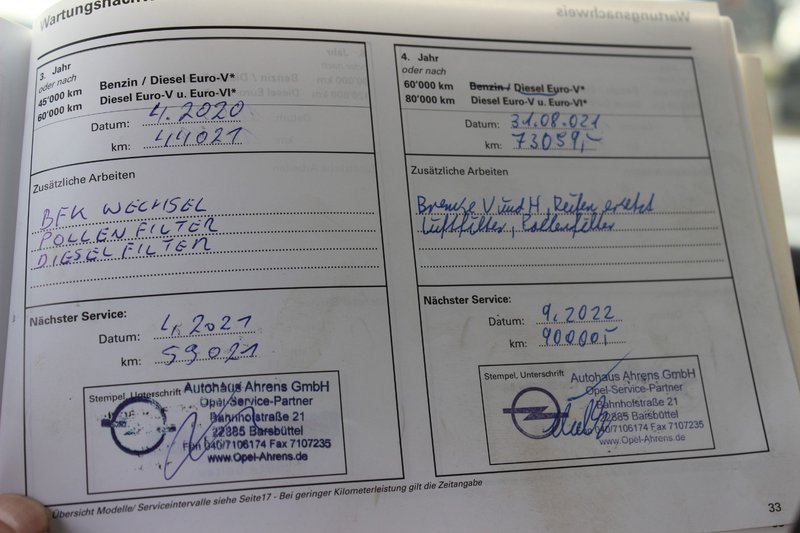 Wartungsnachw
3. Jahr
oder nach
45'000 km Benzin / Diesel Euro-V*
60'000 km Diesel Euro-V u. Euro-VI*
Datum: 4.2020
km: 44021
Zusätzliche Arbeiten
BFK WECHSEL
POLLENFILTER
DIESELFILTER
Nächster Service:
Datum: 4.2021
km: 59021
Stempel, Unterschrift
Autohaus Ahrens GmbH
Opel-Service-Partner
Bahnhofstraße 21
22885 Barsbüttel
Fon 040/7106174 Fax 7107235
www.Opel-Ahrens.de
4. Jahr
oder nach
60'000 km Benzin / Diesel Euro-V*
80'000 km Diesel Euro-V u. Euro-VI*
Datum: 31.08.021
km: 73059,-
Zusätzliche Arbeiten
Bremse V und H, Reifen ersetzt
Luftfilter, Pollenfilter
Nächster Service:
Datum: 9.2022
km: 90000,-
Stempel, Unterschrift
Autohaus Ahrens GmbH
Opel-Service-Partner
Bahnhofstraße 21
22885 Barsbüttel
Fon 040/7106174 Fax 7107235
www.Opel-Ahrens.de
Übersicht Modelle/ Serviceintervalle siehe Seite17 - Bei geringer Kilometerleistung gilt die Zeitangabe
33